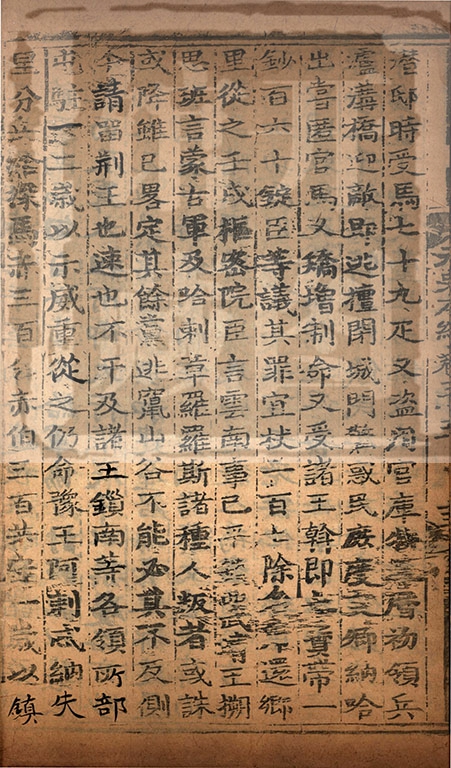 潛邸時受馬七十九疋又盜用官庫物天曆初領兵
瀘溝橋迎敵即逃擅閉城門驚惑民庶度支卿納哈
出嘗匿官馬又矯增制命又受諸王斡即七寶帶一
鈔百六十錠臣等議其罪宜杖一百七除名斥還鄉
里從之壬戌樞密院臣言雲南事已平鎮西武靖王搠
思班言蒙古軍及哈剌章羅羅斯諸種人叛者或誅
或降雖已畧定其餘黨逃竄山谷不能必其不反側
今請留荆王也速也不干及諸王鎖南等各領所部
屯駐一二歲以示威重從之仍命豫王阿剌忒納失
里分兵給探馬赤三百乞赤伯三百共守一歲以鎮